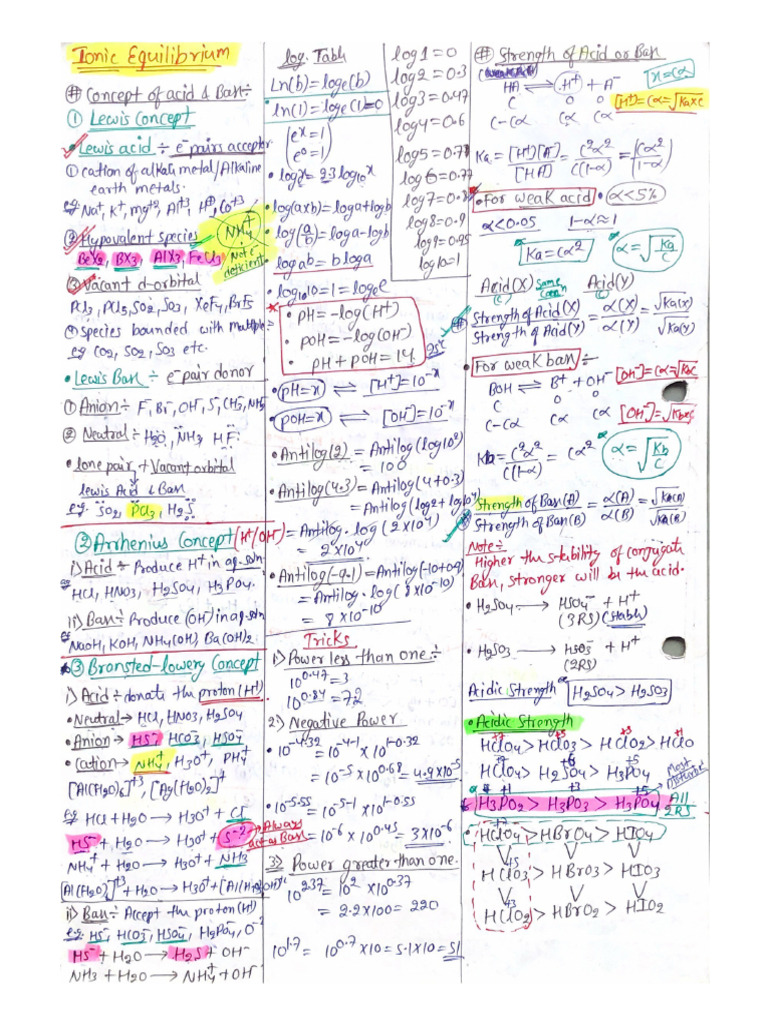 Ionic Equilibrium
# Concept of acid & Base÷
① Lewis Concept
• Lewis acid ÷ e⁻pairs acceptor
① cation of alkali metal/Alkaline
earth metals.
eg Na⁺, K⁺, mg⁺², Al⁺³, H⁺, Co⁺³
② Hypovalent species
NH₄⁺
Not e⁻
deficient
BeX₂, BX₃, AlX₃, FeCl₃
③ Vacant d-orbital
PCl₃, PCl₅, SO₂, SO₃, XeF₄, BrF₅
④ species bounded with multiple =
eg CO₂, SO₂, SO₃ etc.
• Lewis Base ÷ e⁻pair donor
① Anion ÷ F⁻, Br⁻, OH⁻, S⁻, CH₃⁻, NH₂⁻
② Neutral ÷ H₂O, NH₃ HF
• lone pair + Vacant orbital
lewis Acid & Base
eg. SO₂, PCl₃, H₂S
② Arrhenius Concept (H⁺/OH⁻)
i) Acid ÷ Produce H⁺ in aq. soln
eg HCl, HNO₃, H₂SO₄, H₃PO₄.
ii) Base ÷ Produce (OH⁻) in aq. soln
eg NaOH, KOH, NH₄(OH) Ba(OH)₂
③ Bronsted-lowery Concept
i) Acid ÷ donate the proton (H⁺)
• Neutral → HCl, HNO₃, H₂SO₄
• Anion → HS⁻, HCO₃⁻, HSO₄⁻
• Cation → NH₄⁺, H₃O⁺, PH₄⁺
[Al(H₂O)₆]⁺³, [Ag(H₂O)₂]⁺
eg HCl + H₂O → H₃O⁺ + Cl⁻
HS⁻ + H₂O → H₃O⁺ + S⁻²
Always
act as Base
NH₄⁺ + H₂O → H₃O⁺ + NH₃
ii) Base ÷ Accept the proton (H⁺)
eg. HS⁻, HCO₃⁻, HSO₄⁻, H₂PO₄⁻, O⁻²
HS⁻ + H₂O → H₂S + OH⁻
NH₃ + H₂O → NH₄⁺ + OH⁻
log. Table
Ln(b) = logₑ(b)
ln(1) = logₑ(1) = 0
(eˣ = 1)
(e⁰ = 1)
• logₑx = 2.3 log₁₀x
• log(a×b) = loga + logb
• log(a/b) = loga - logb
• logaᵇ = b loga
• log₁₀10 = 1 = logₑe
• PH = -log(H⁺)
• POH = -log(OH⁻)
• PH + POH = 14
25°C
• PH = x ⇌ [H⁺] = 10⁻ˣ
• POH = x ⇌ [OH⁻] = 10⁻ˣ
• Antilog(2) = Antilog(log10²)
= 100
• Antilog(4.3) = Antilog(4+0.3)
= Antilog(log2 + log10⁴)
= Antilog.log(2×10⁴)
= 2×10⁴
• Antilog(-9.1) = Antilog(-10+0.9)
= Antilog.log(8×10⁻¹⁰)
= 8×10⁻¹⁰
Tricks
1) Power less than one ÷
10⁰·⁴⁷ = 3
10⁰·⁸⁴ = 7.2
2) Negative Power
• 10⁻⁴·³² = 10⁻⁴⁻¹ × 10¹⁻⁰·³²
= 10⁻⁵ × 10⁰·⁶⁸ = 4.9×10⁻⁵
• 10⁻⁵·⁵⁵ = 10⁻⁵⁻¹ × 10¹⁻⁰·⁵⁵
= 10⁻⁶ × 10⁰·⁴⁵ = 3×10⁻⁶
3) Power greater than one.
10²·³⁷ = 10² × 10⁰·³⁷
= 2.2×100 = 220
10¹·⁷ = 10⁰·⁷ × 10 = 5.1×10 = 51
log1 = 0
log2 = 0.3
log3 = 0.47
log4 = 0.6
log5 = 0.77
log6 = 0.77
log7 = 0.8
log8 = 0.9
log9 = 0.95
log10 = 1
# Strength of Acid or Base
HA ⇌ H⁺ + A⁻
x = Cα
C 0 0
[H⁺] = Cα = √Ka×C
C-Cα Cα Cα
Ka = [H⁺][A⁻]/[HA] = C²α²/C(1-α) = (Cα²/1-α)
• For weak acid • α<5%
α<0.05 1-α≈1
Ka = Cα² α = √Ka/C
Acid(X) Same Conc Acid(Y)
(C) (C)
Strength of Acid(X)/Strength of Acid(Y) = α(X)/α(Y) = √Ka(X)/√Ka(Y)
• For weak base ÷
[OH⁻] = Cα = √KbC
BOH ⇌ B⁺ + OH⁻
C 0 0
[OH⁻] = √Kb×C
C-Cα Cα Cα
Kb = C²α²/C(1-α) = Cα² α = √Kb/C
Strength of Base(A)/Strength of Base(B) = α(A)/α(B) = √Kb(A)/√Kb(B)
Note÷
Higher the stability of conjugate
Base, stronger will be the acid.
• H₂SO₄ → HSO₄⁻ + H⁺
(3RS) (stable)
• H₂SO₃ → HSO₃⁻ + H⁺
(2RS)
Aidic Strength H₂SO₄ > H₂SO₃
• Acidic Strength
+7 +5 +3 +1
HClO₄ > HClO₃ > HClO₂ > HClO
+7 +6 +5
HClO₄ > H₂SO₄ > H₃PO₄
Most
+1 +3 +5
H₃PO₂ > H₃PO₃ > H₃PO₄
All
2RS
• HClO₄ > HBrO₄ > HIO₄
+5
HClO₃ > HBrO₃ > HIO₃
+3
HClO₂ > HBrO₂ > HIO₂